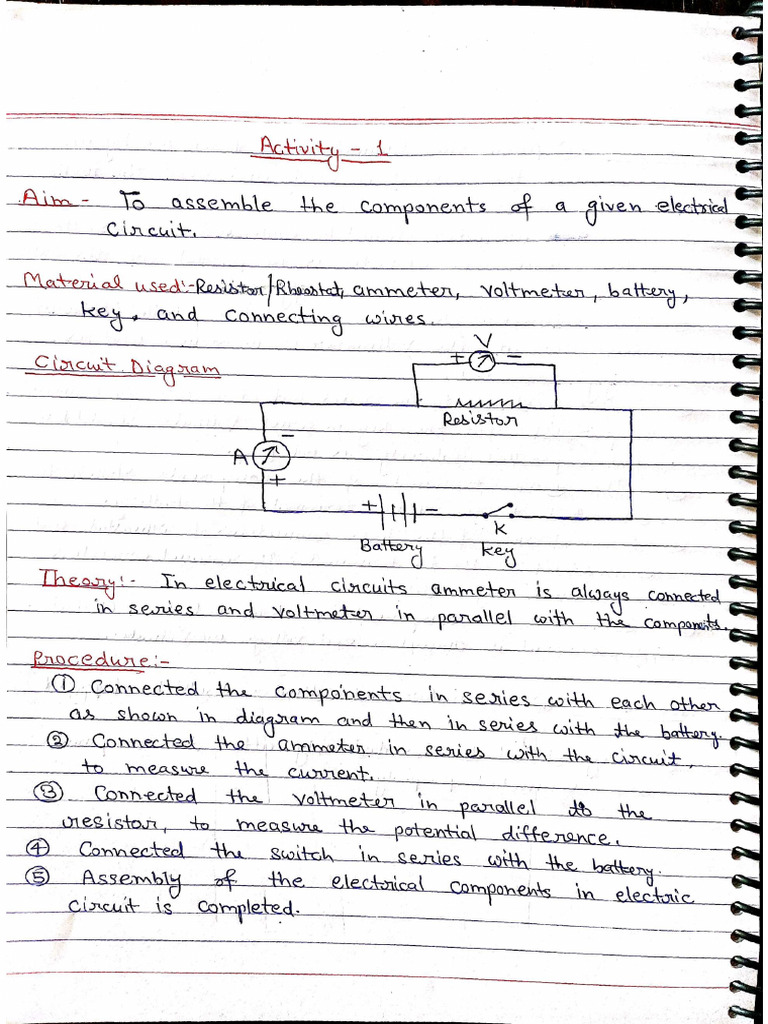 Activity - 1
Aim - To assemble the components of a given electrical
circuit.
Material used:- Resistor/Rheostat, ammeter, voltmeter, battery,
key, and connecting wires.
Circuit Diagram
V
+ -
Resistor
-
A
+
+ -
K
Battery key
Theory:- In electrical circuits ammeter is always connected
in series and voltmeter in parallel with the components.
Procedure:-
① Connected the components in series with each other
as shown in diagram and then in series with the battery.
② Connected the ammeter in series with the circuit,
to measure the current.
③ Connected the voltmeter in parallel to the
resistor, to measure the potential difference.
④ Connected the switch in series with the battery.
⑤ Assembly of the electrical components in electric
circuit is completed.